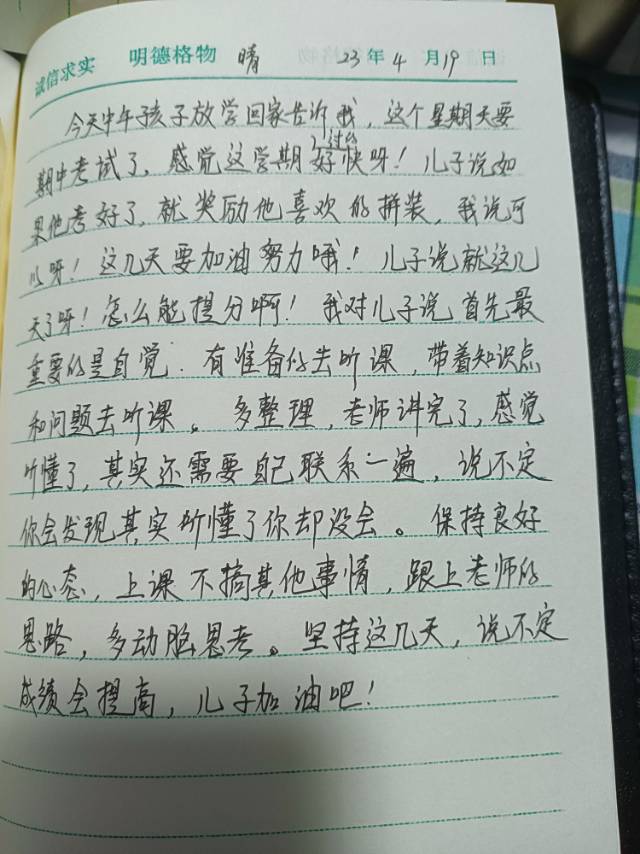 诚信求实 明德格物 晴 23年4月19日
今天中午孩子放学回家告诉我，这个星期天要
期中考试了，感觉这学期好过的快呀！儿子说如
果他考好了，就奖励他喜欢的拼装，我说可
以呀！这几天要加油努力哦！儿子说就这几
天了呀！怎么能提分啊！我对儿子说首先最
重要的是自觉．有准备的去听课，带着知识点
和问题去听课。多整理，老师讲完了，感觉
听懂了，其实还需要自己联系一遍，说不定
你会发现其实听懂了你却没会。保持良好
的心态，上课不搞其他事情，跟上老师的
思路，多动脑思考。坚持这几天，说不定
成绩会提高，儿子加油吧！